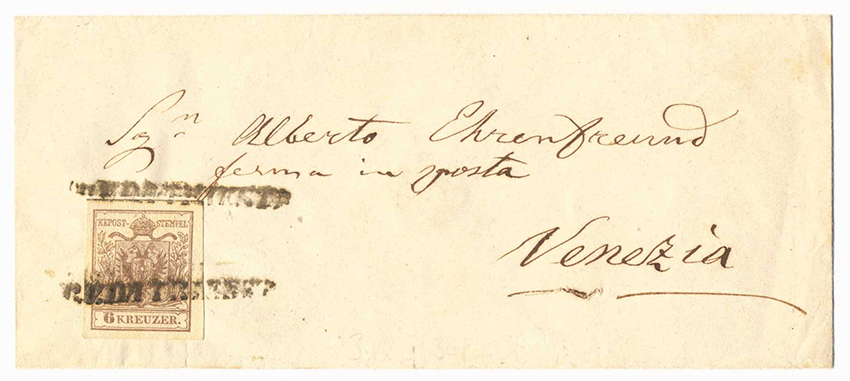 Sgn Alberto Ehrenfreund
ferma in posta
Venezia
KKPOST-STEMPEL
6 KREUZER.